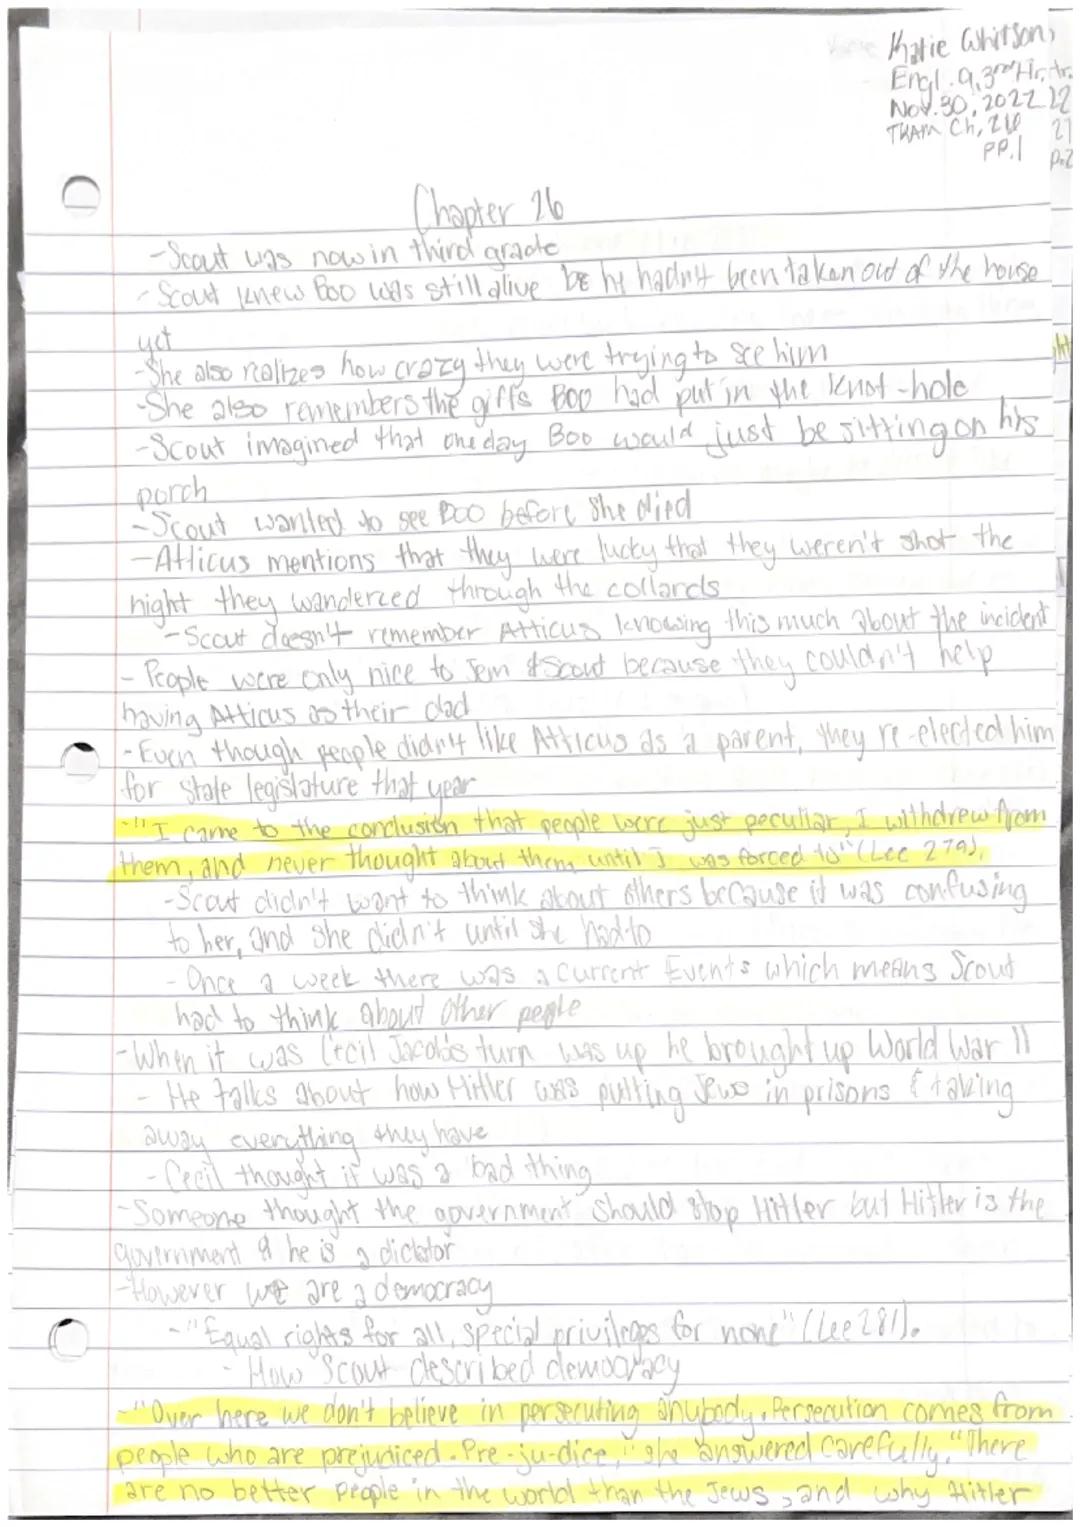 Katie Whitson,
Engl. 9, 3rd Hr,
Nov. 30, 2022
TKAM Ch, 26
PP. 1
Chapter 26
- Scout was now in third grade
- Scout knew Boo was still alive bc he hadn't been taken out of the house
yet
- She also realizes how crazy they were trying to see him
- She also remembers the gifts Boo had put in the knot-hole
- Scout imagined that one day Boo would just be sitting on his
porch
- Scout wanted to see Boo before she died
- Atticus mentions that they were lucky that they weren't shot the
night they wandered through the collards
- Scout doesn't remember Atticus knowing this much about the incident
- People were only nice to Jem & Scout because they couldn't help
having Atticus as their dad
- Even though people didn't like Atticus as a parent, they re-elected him
for state legislature that year
- "I came to the conclusion that people were just peculiar, I withdrew from
them, and never thought about them until I was forced to" (Lee 279).
- Scout didn't want to think about others because it was confusing
to her, and she didn't until she had to
- Once a week there was a Current Events which means Scout
had to think about other people
- When it was Cecil Jacobs turn was up he brought up World War II
- He talks about how Hitler was putting Jews in prisons & taking
away everything they have
- Cecil thought it was a bad thing
- Someone thought the government should stop Hitler but Hitler is the
government & he is a dictator
- However we are a democracy
- "Equal rights for all, special privileges for none" (Lee 281).
- How Scout described democracy
- "Over here we don't believe in persecuting anybody. Persecution comes from
people who are prejudiced. Pre-ju-dice," she answered carefully. "There
are no better people in the world than the Jews, and why Hitler